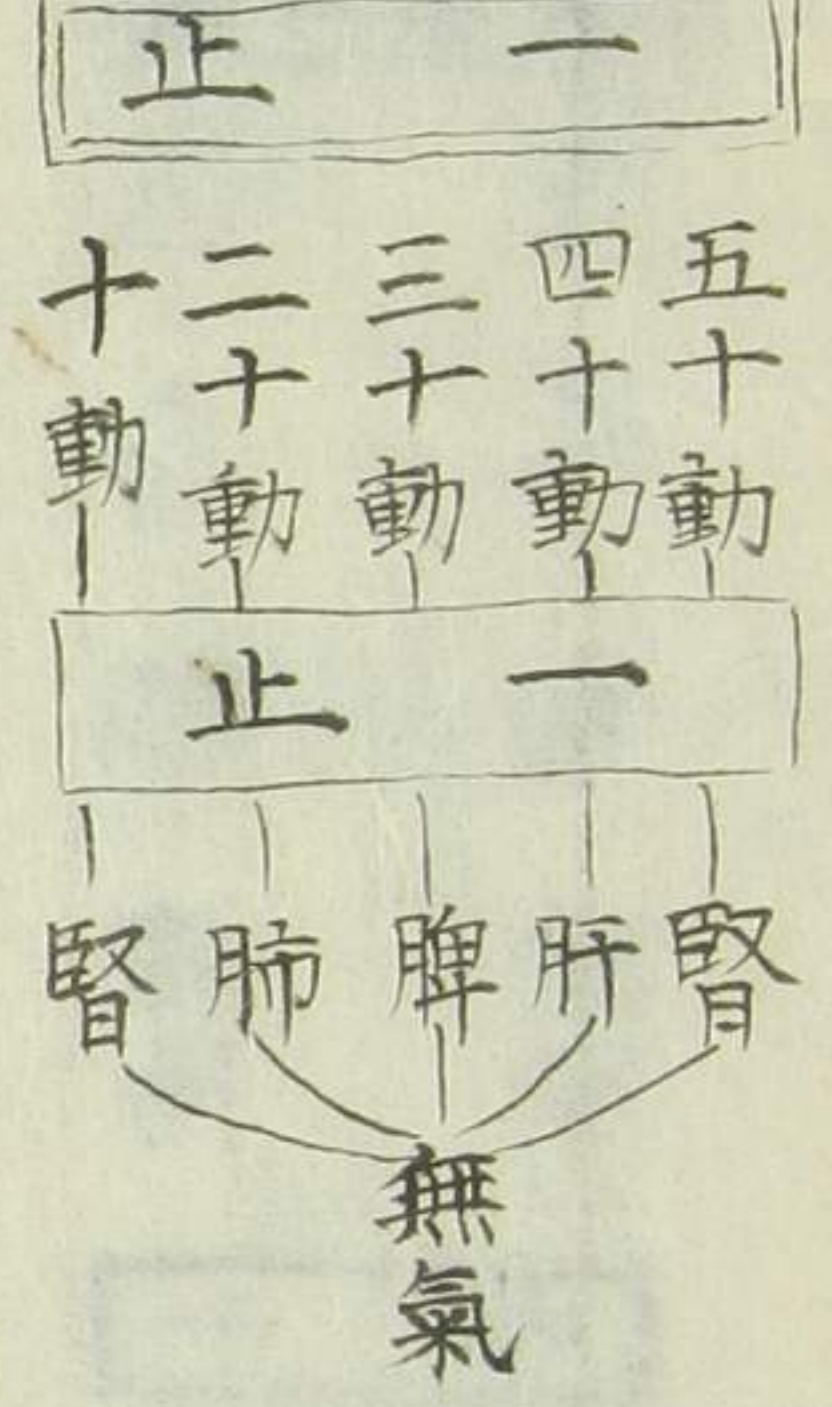 一止
五十動
四十動
三十動
二十動
十動
一止
腎
肝
脾
肺
腎
無氣